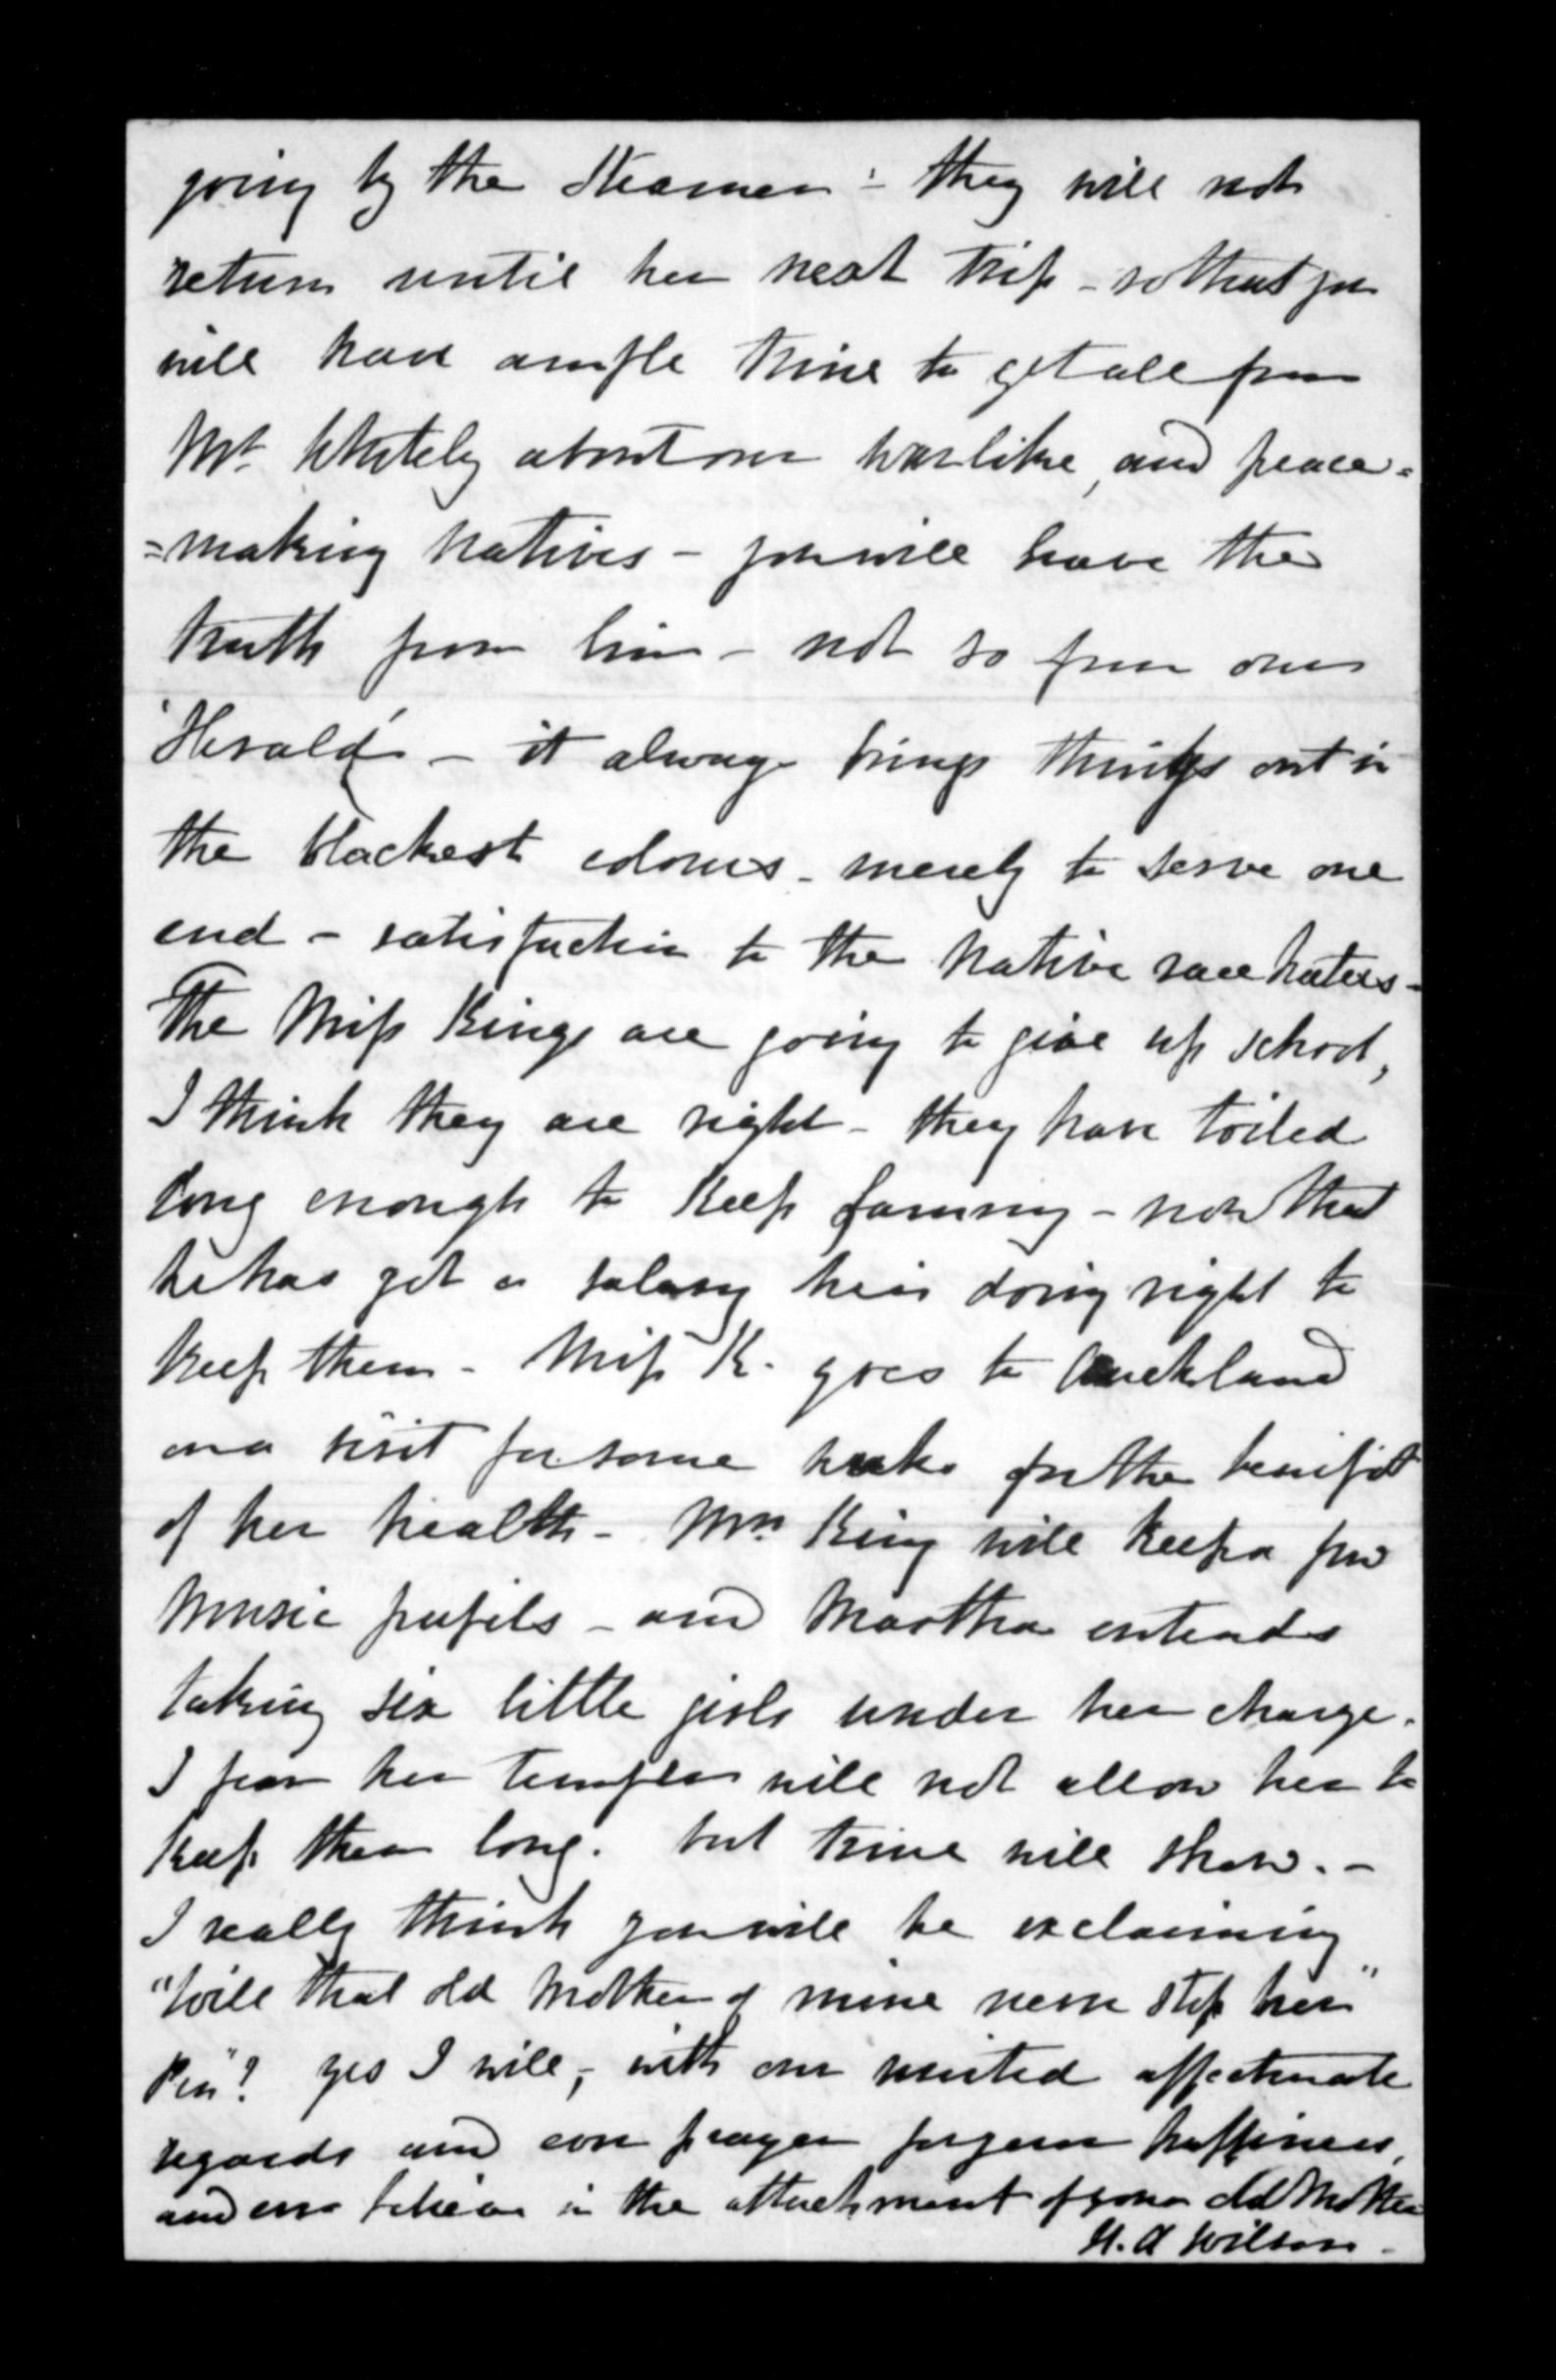 going by the Steamer - they will not
return until her next trip - so that you
will have ample time to get all from
Mr. Whitely about our warlike, and peace=
=making natives - you will have the
truth from him - not so from our
'Herald' - it always brings things out in
the blackest colours - merely to serve one
end - satisfaction to the native race haters -
The Miss Kings are going to give up school,
I think they are right - they have toiled
long enough to keep farming - now that
he has got a salary he is doing right to
keep them - Miss K. goes to Auckland
on a visit for some weeks for the benifit
of her health - Mrs King will keep a few
music pupils - and Martha entends
taking six little girls under her charge.
I fear her temper will not allow her to
keep them long. but time will show. -
I really think you will be exclaiming
"Will that old Mother of mine never stop her"
Pen"? yes I will, - with our united affectionate
regards and our prayer for your happiness,
and ever believe in the attachment of your old Mother
H. A Wilson -